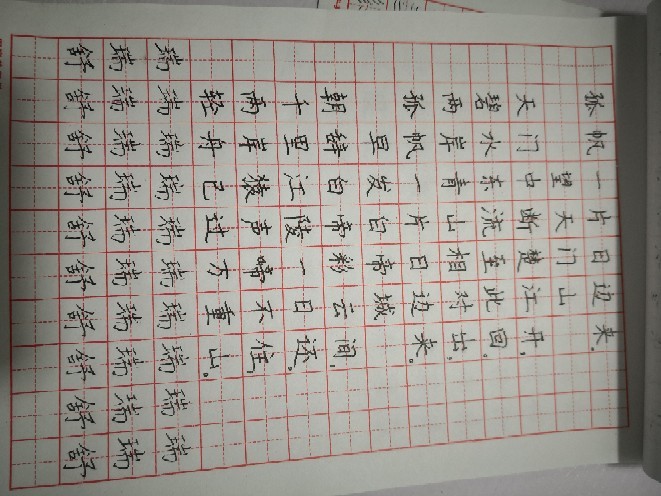 孤帆一片日边来。
望天门山
天门中断楚江开,
碧水东流至此回。
两岸青山相对出,
孤帆一片日边来。
早发白帝城
朝辞白帝彩云间,
千里江陵一日还。
两岸猿声啼不住,
轻舟已过万重山。
瑞瑞瑞瑞瑞瑞瑞瑞瑞瑞
瑞瑞瑞瑞瑞瑞瑞瑞瑞瑞
舒舒舒舒舒舒舒舒舒舒